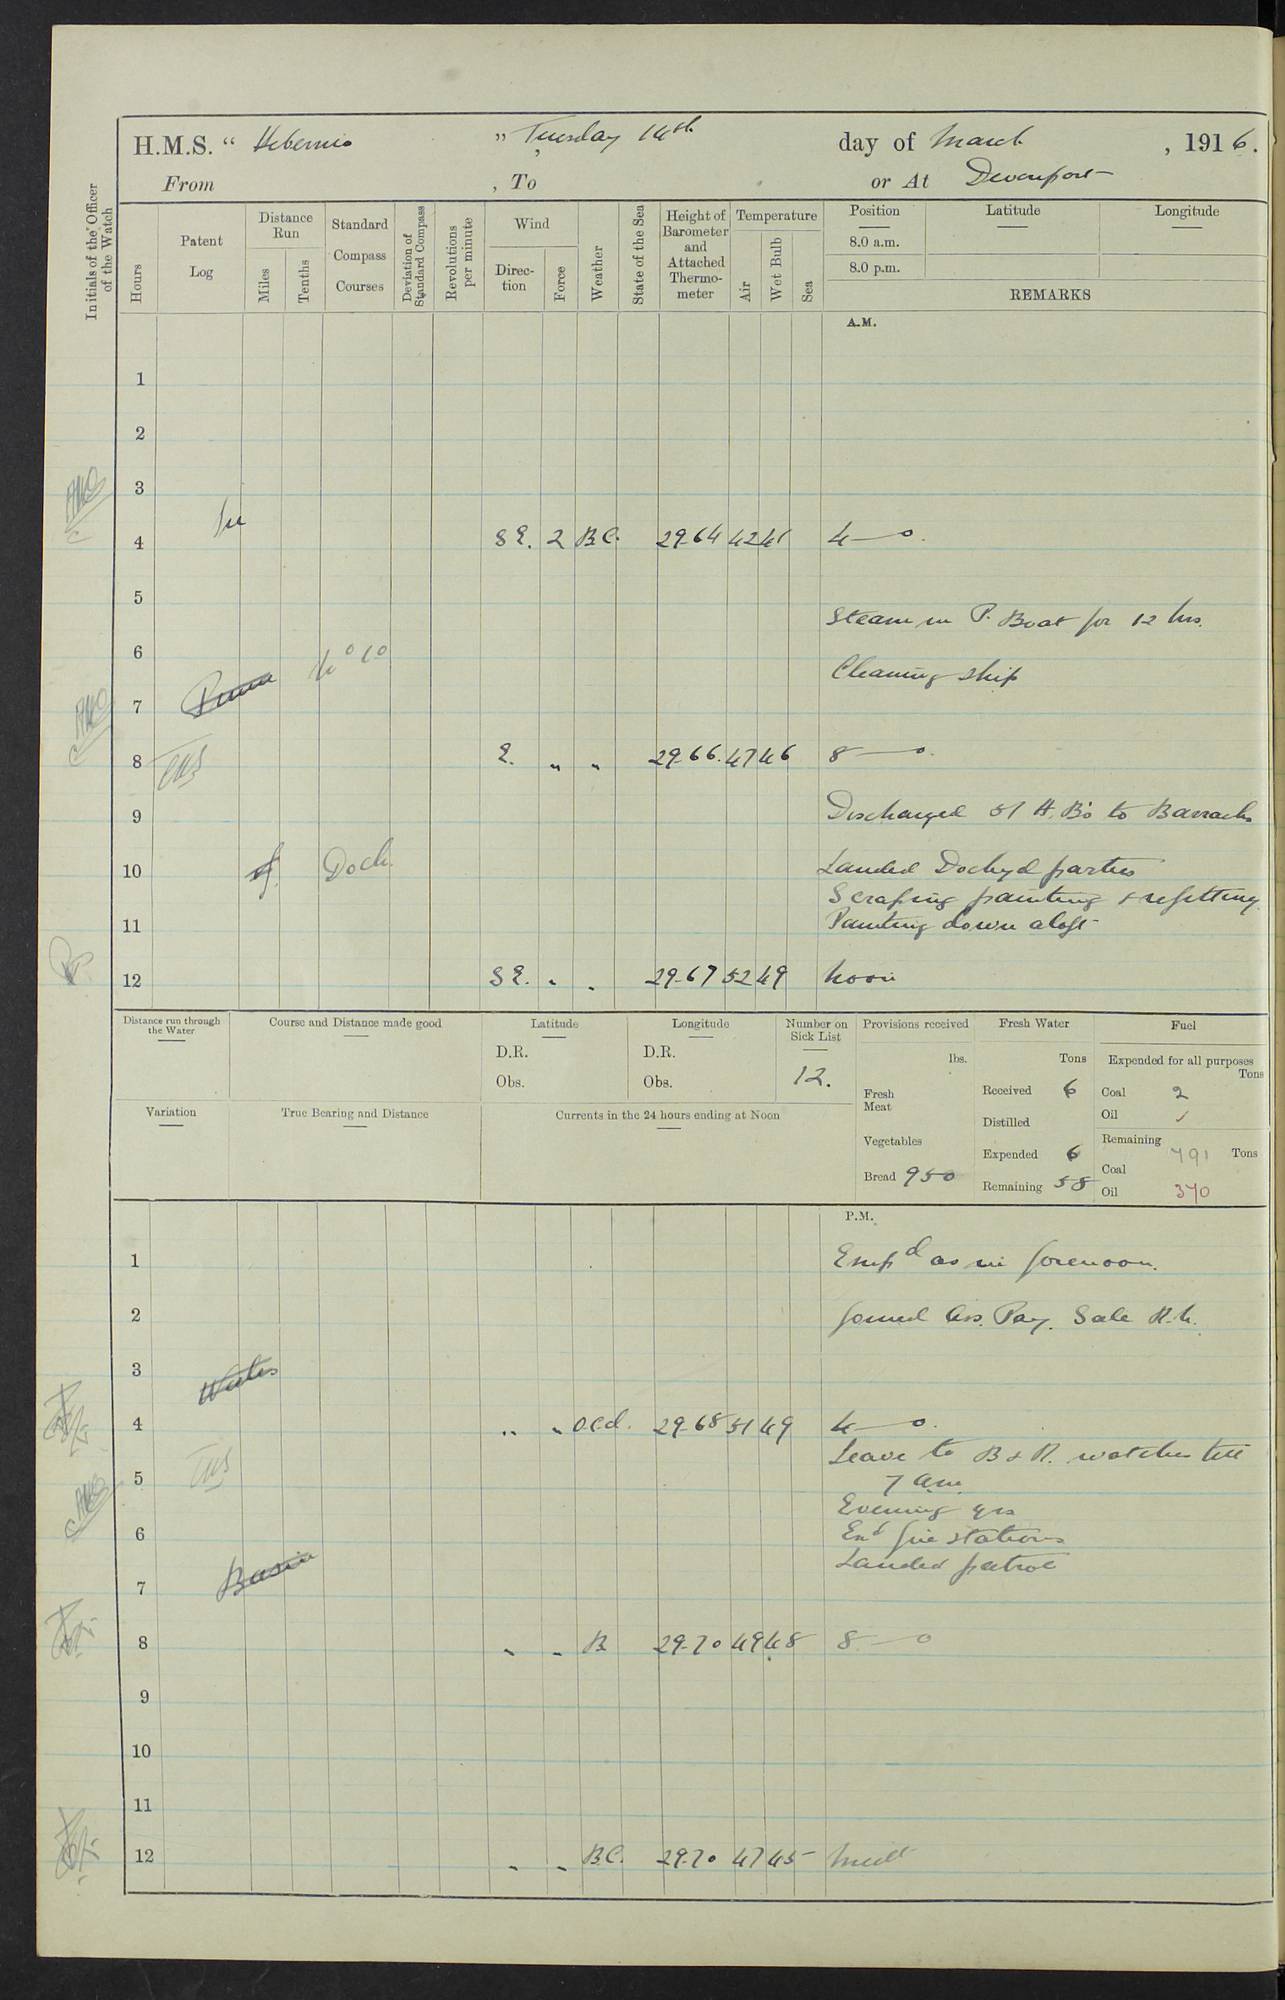 H.M.S. “ Hibernia ” Tuesday 14th day of March , 1916.
From , To or At Devonport
Initials of the Officer of the Watch
Hours
Patent Log
Distance Run
Miles
Tenths
Standard Compass Courses
Deviation of Standard Compass
Revolutions per minute
Wind
Direc-tion
Force
Weather
State of the Sea
Height of Barometer and Attached Thermo-meter
Temperature
Air
Wet Bulb
Sea
Position Latitude Longitude
8.0 a.m.
8.0 p.m.
REMARKS
A.M.
1
2
3
In
4 S E. 2 B.C. 29.64 42 41 4—0.
5
Steam in P. Boat for 12 hrs.
6 No 10
Cleaning ship
7
8 E. „ „ 29.66. 47 46 8—0.
9 Discharged 51 H.B's to Barracks
10 Dock. Landed Dockyd parties
Scraping painting & refitting
11 Painting down aloft
12 S E. „ „ 29.67 52 49 Noon
Distance run through the Water
Course and Distance made good
Latitude
D.R.
Obs.
Longitude
D.R.
Obs.
Number on Sick List
12.
Provisions received
lbs.
Fresh Meat
Vegetables
Bread 950
Fresh Water
Tons
Received 6
Distilled
Expended 6
Remaining 58
Fuel
Expended for all purposes
Tons
Coal 2
Oil
Remaining Tons
Coal 791
Oil 370
Variation
True Bearing and Distance
Currents in the 24 hours ending at Noon
P.M.
1 Empd as in forenoon.
2 Joined Ass. Pay. Sale R.N.
3
4 „ „ o.c.d. 29.68 51 49 4—0.
Leave to B & R. watches till
5 7 am.
Evening qrs
6 Exd fire stations
Landed patrol
Basin
7
8 „ „ B 29.70 49 48 8—0
9
10
11
12 „ „ B.C. 29.70 47 45 Midt